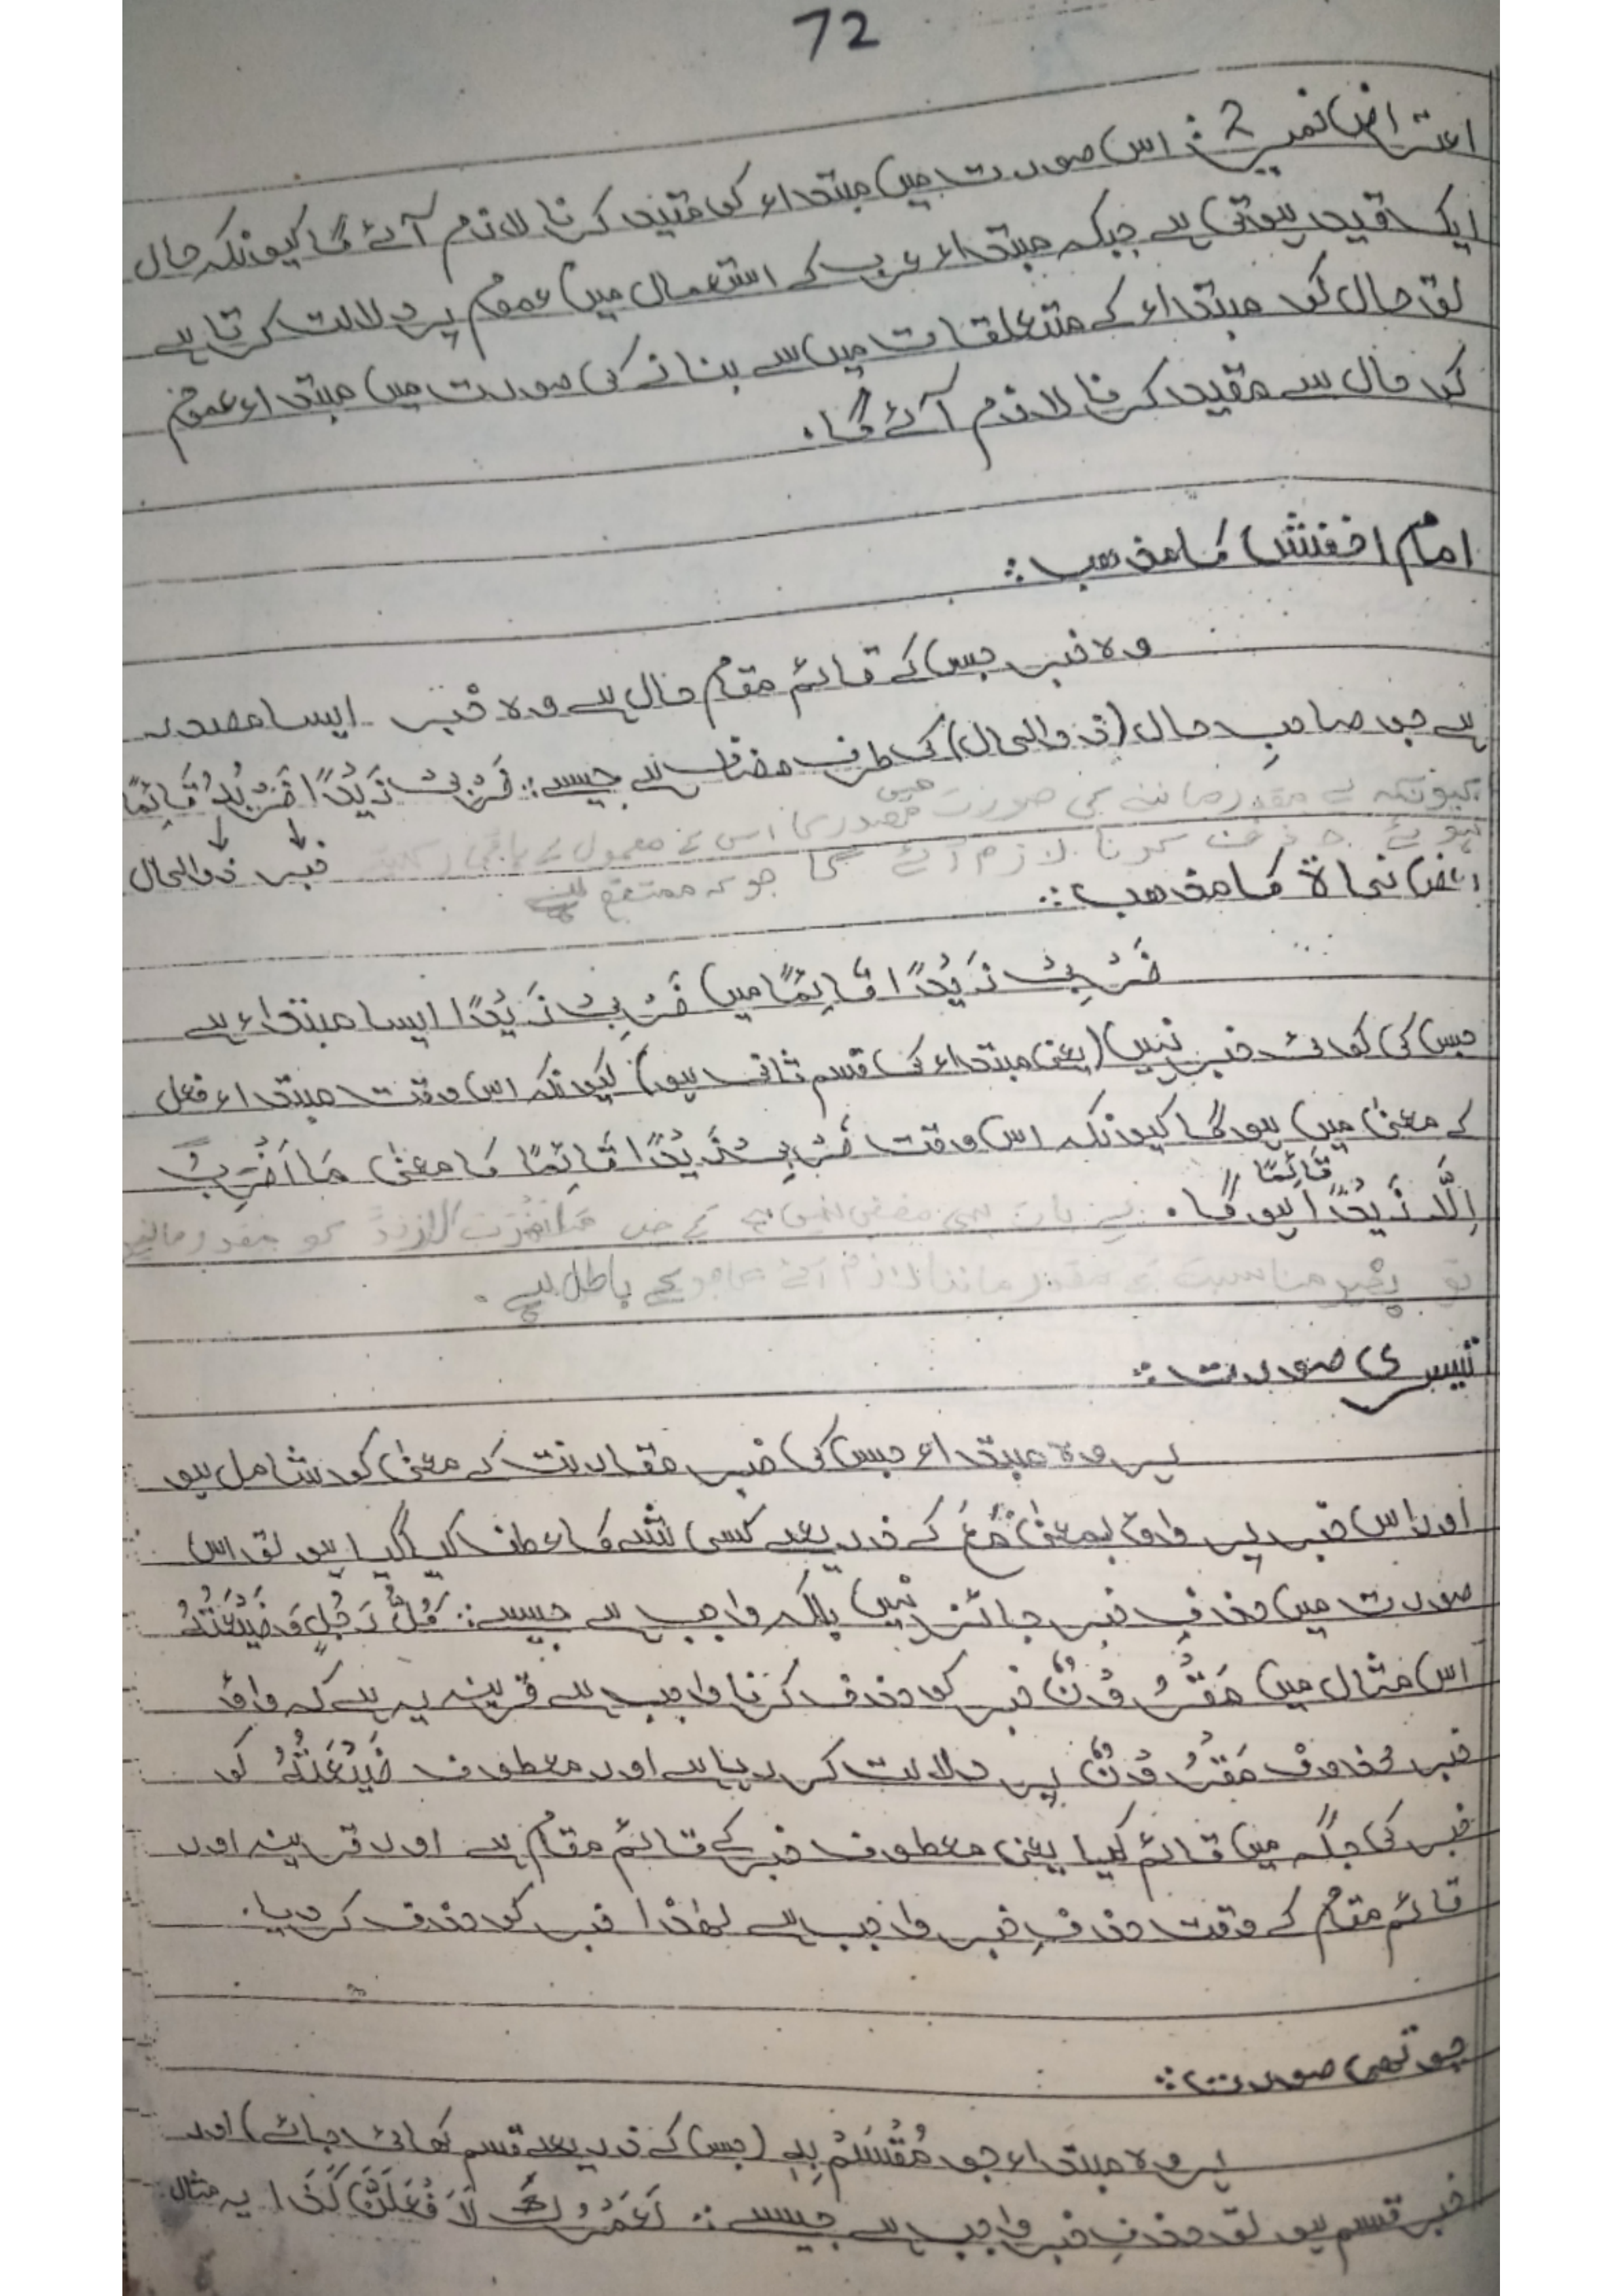 72
اعتراض نمبر 2: اس صورت میں مبتداء کو مقید کرنا لازم آئے گا کیونکہ حال
ایک قید ہوتی ہے جبکہ مبتداء عرب کے استعمال میں عموم پر دلالت کرتا ہے
تو حال کو مبتداء کے متعلقات میں سے بنانے کی صورت میں مبتداء عموم
کو حال سے مقید کرنا لازم آئے گا۔
امام اخفش کا مذھب:
وہ خبر جس کے قائم مقام حال ہے وہ خبر ایسا مصدر
ہے جو صاحبِ حال (ذوالحال) کی طرف مضاف ہے جیسے: ضَرْبِیْ زَیْدًا ضَرْبُہُ قَائِمًا
کیونکہ یہ مقدر ماننے کی صورت میں مصدر کا اس کے معمول کے باقی
ہوئے حذف کرنا لازم آئے گا جو کہ ممتنع ہے
خبر ذوالحال
بعض نحاۃ کا مذھب:
ضَرْبِیْ زَیْدًا قَائِمًا میں ضَرْبِیْ زَیْدًا ایسا مبتداء ہے
جس کی کوئی خبر نہیں (یعنی مبتداء کی قسم ثانی ہو) کیونکہ اس وقت مبتداء فعل
کے معنیٰ میں ہوگا کیونکہ اس وقت ضَرْبِیْ زَیْدًا قَائِمًا کا معنیٰ مَا اَضْرِبُ
اِلَّا زَیْدًا قَائِمًا ہوگا۔ یہ بات بھی کو مقدر مانیں
تو پھر مناسبت مقدر ماننا لازم آئے گا جو کے باطل ہے۔
تیسری صورت:
ہر وہ مبتداء جس کی خبر مقارنت کے معنیٰ کو شامل ہو
اور اس خبر پر واؤ بمعنیٰ مَعَ کے ذریعے کسی شے کا عطف کیا گیا ہو تو اس
صورت میں حذفِ خبر جائز نہیں بلکہ واجب ہے جیسے: کُلُّ رَجُلٍ وَضَیْعَتُہُ
اس مثال میں مَقْرُوْنٌ خبر کو حذف کرنا واجب ہے قرینہ یہ ہے کہ واؤ
خبر محذوف مَقْرُوْنٌ پر دلالت کر رہا ہے اور معطوف ضَیْعَتُہُ کو
خبر کی جگہ میں قائم کیا یعنی معطوف خبر کے قائم مقام ہے اور قرینہ اور
قائم مقام کے وقت حذفِ خبر واجب ہے لہٰذا خبر کو حذف کر دیا۔
چوتھی صورت:
ہر وہ مبتداء جو مُقْسَمْ بِہِ (جس کے ذریعے قسم کھائی جائے) اور
خبر قسم ہو تو حذفِ خبر واجب ہے جیسے: لَعَمْرُكَ لَاَفْعَلَنَّ کَذَا یہ مثال